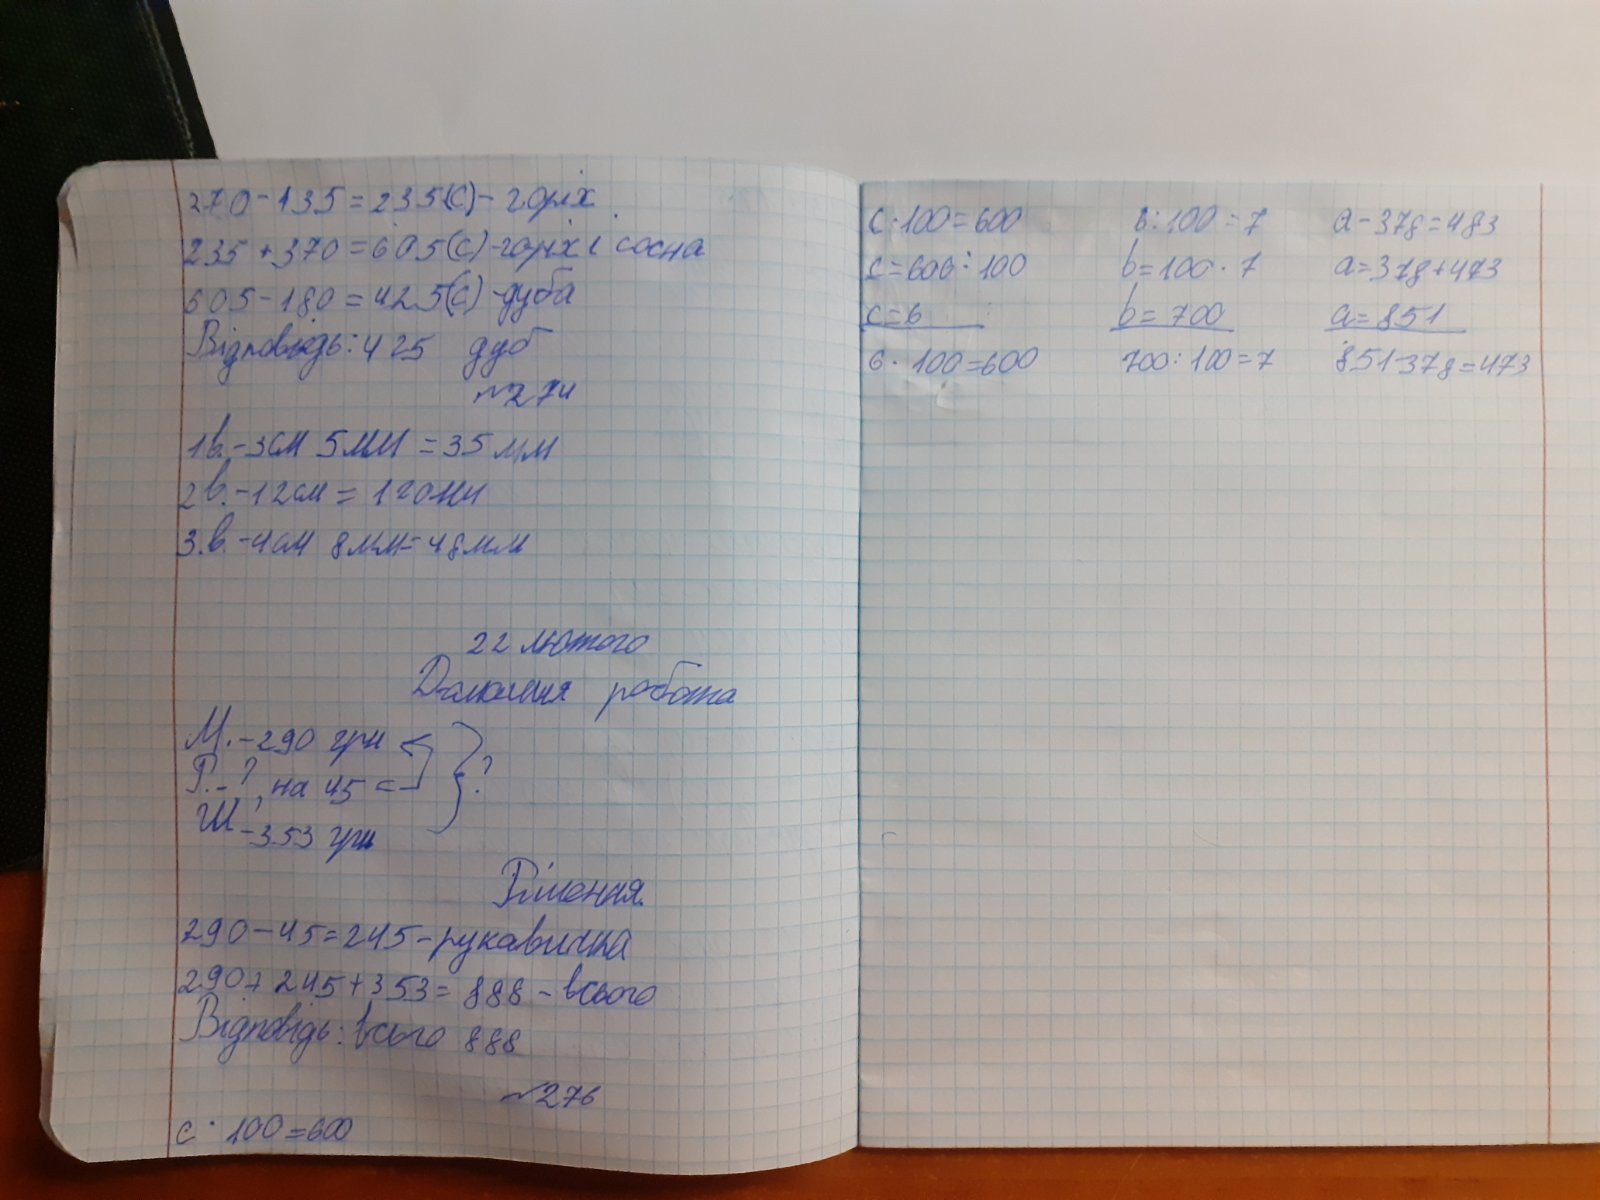 270-135=235(с)-горіх
235+370=605(с)-горіх і сосна
605-180=425(с)-дуба
Відповідь: 425 дуб
№274
1в.-3см 5мм=35мм
2в.-12см=120мм
3.в.-4см 8мм=48мм
22 лютого
Домашня робота
М.-290 грн
Р.-?, на 45 <
?
Ш-353 грн
Рішення.
290-45=245-рукавичка
290+245+353=888-всього
Відповідь: всього 888
№276
c·100=600
c·100=600 в:100=7 a-378=483
c=600:100 b=100·7 a=378+473
c=6 b=700 a=851
6·100=600 700:100=7 851-378=473